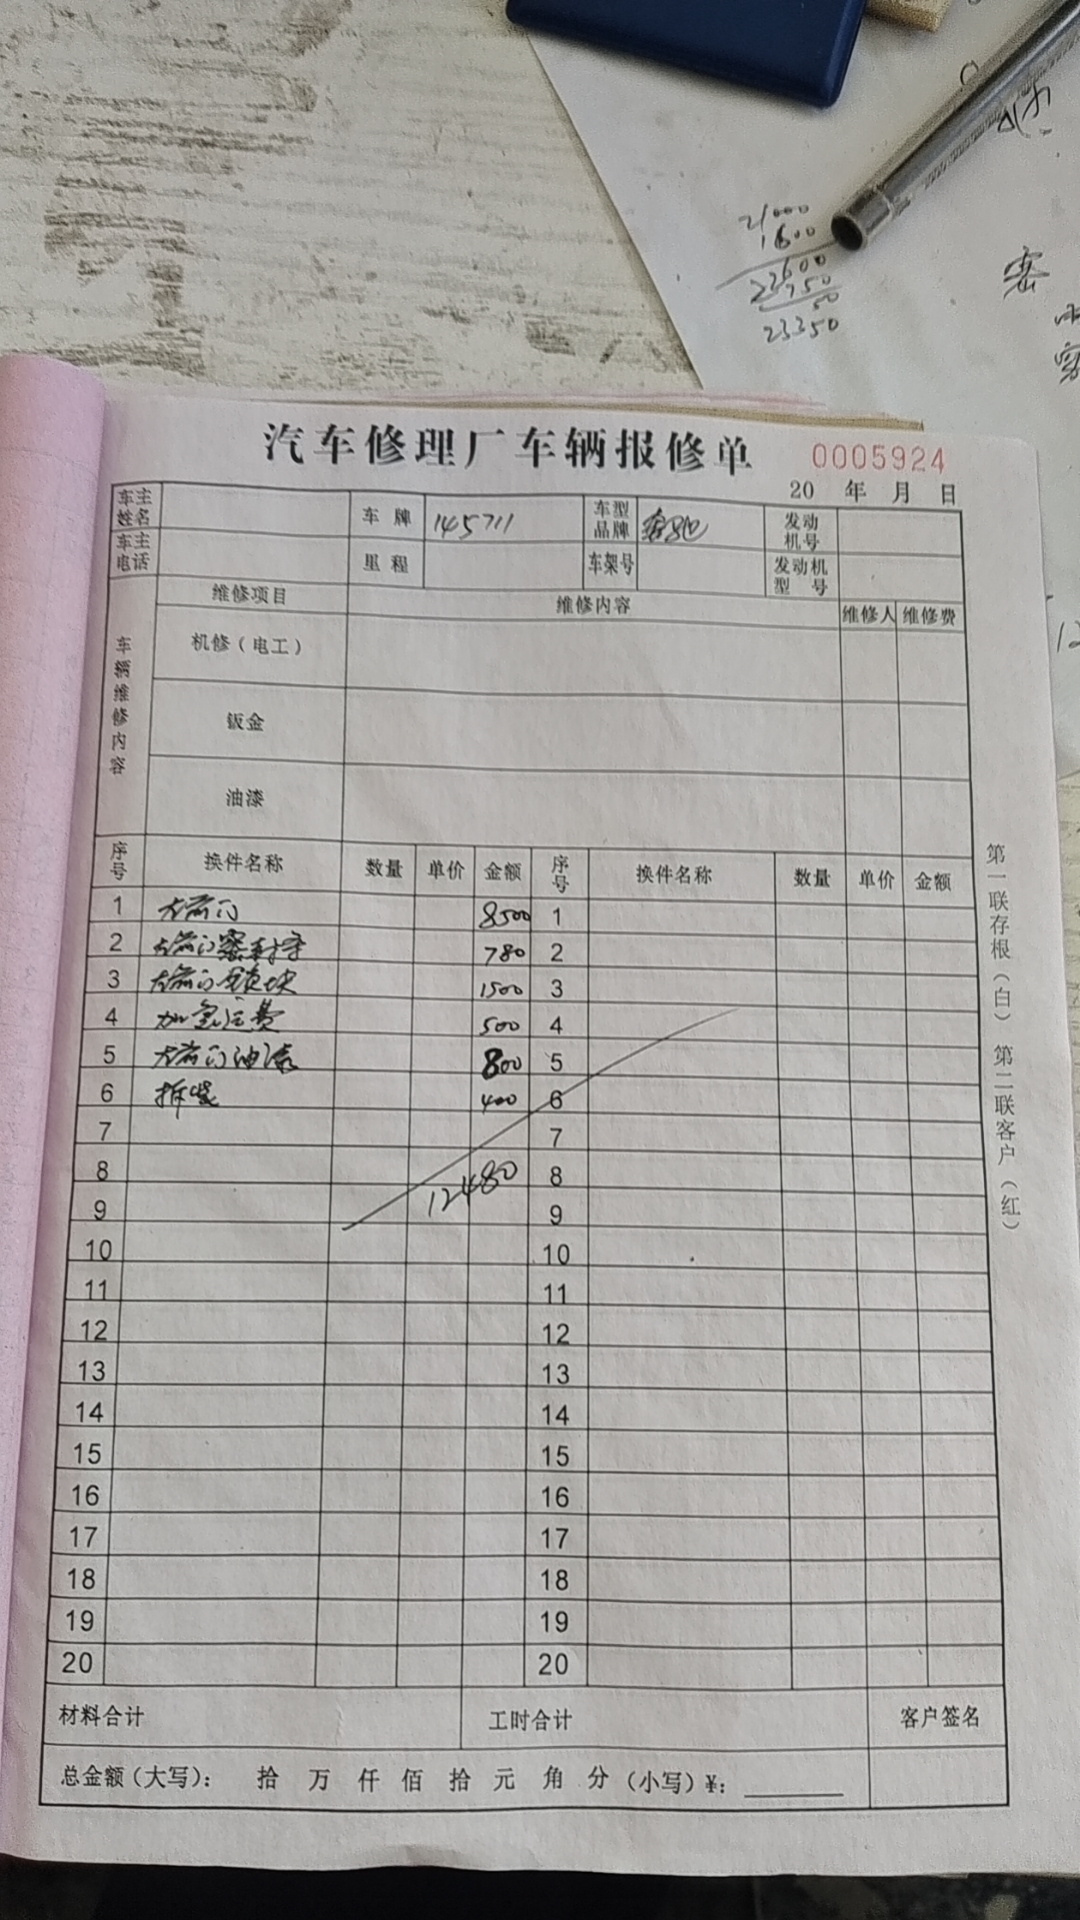 21000
1600
23600
750
50
23350
密
汽车修理厂车辆报修单
0005924
20 年 月 日
车主姓名 车牌 145711 车型品牌 奔驰 发动机号
车主电话 里程 车架号 发动机型号
车辆维修内容 维修项目 维修内容 维修人 维修费
机修(电工)
钣金
油漆
序号 换件名称 数量 单价 金额 序号 换件名称 数量 单价 金额
1 左前门 8500 1
2 左前门密封条 780 2
3 左前门锁块 1500 3
4 加急运费 500 4
5 左前门油漆 800 5
6 拆装 400 6
7 7
8 12480 8
9 9
10 10
11 11
12 12
13 13
14 14
15 15
16 16
17 17
18 18
19 19
20 20
材料合计 工时合计 客户签名
总金额(大写): 拾 万 仟 佰 拾 元 角 分 (小写)¥:
第一联存根(白) 第二联客户(红)